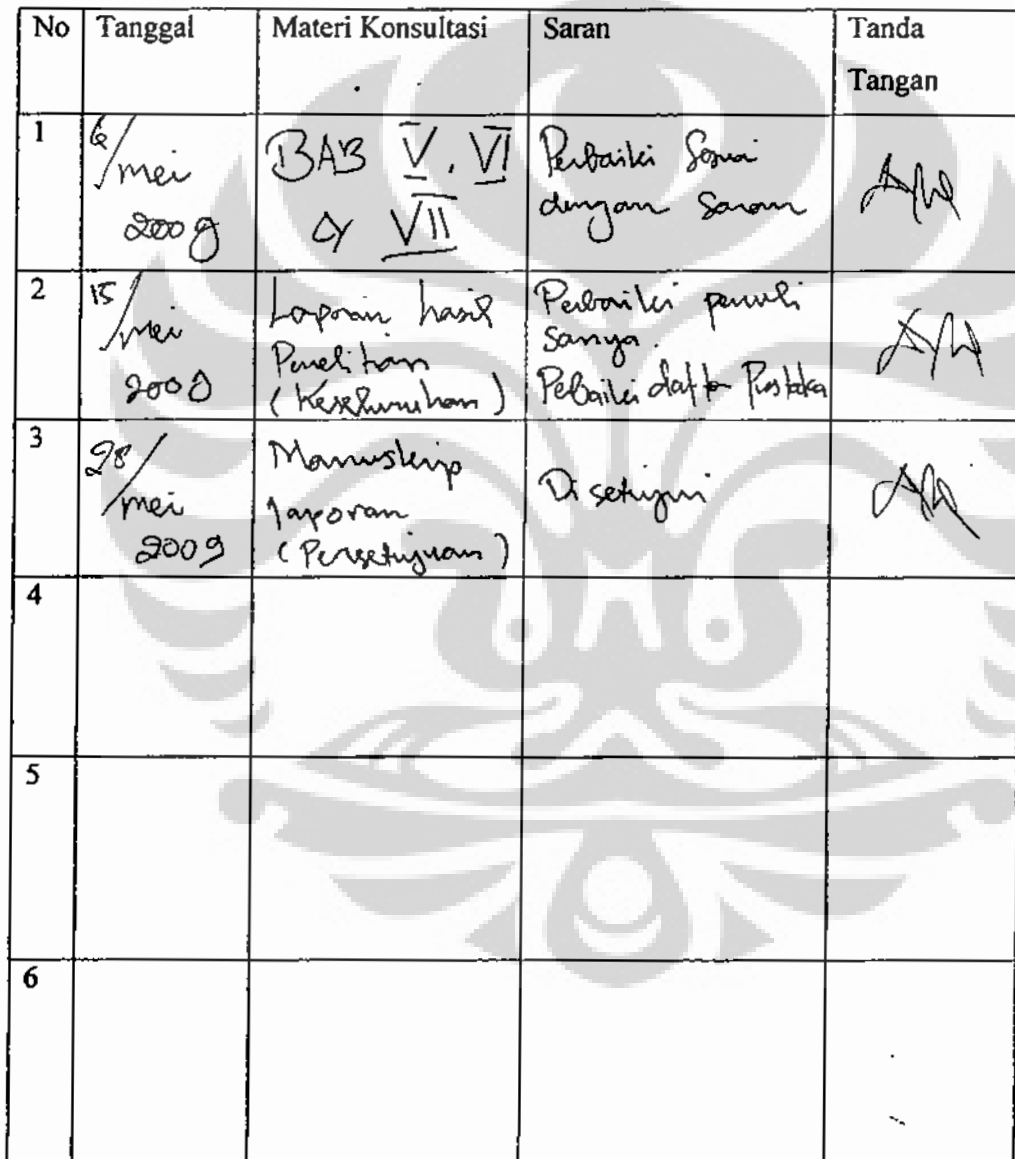 No Tanggal Materi Konsultasi Saran Tanda
Tangan
1
6/
mei
2009
BAB V, VI
& VII
Perbaiki Sesuai
dengan Saran
2
15/
mei
2009
Laporan hasil
Penelitian
(Keseluruhan)
Perbaiki penuli
sanya.
Perbaiki daftar Pustaka
3
28/
mei
2009
Manuskrip
laporan
(Persetujuan)
Disetujui
4
5
6